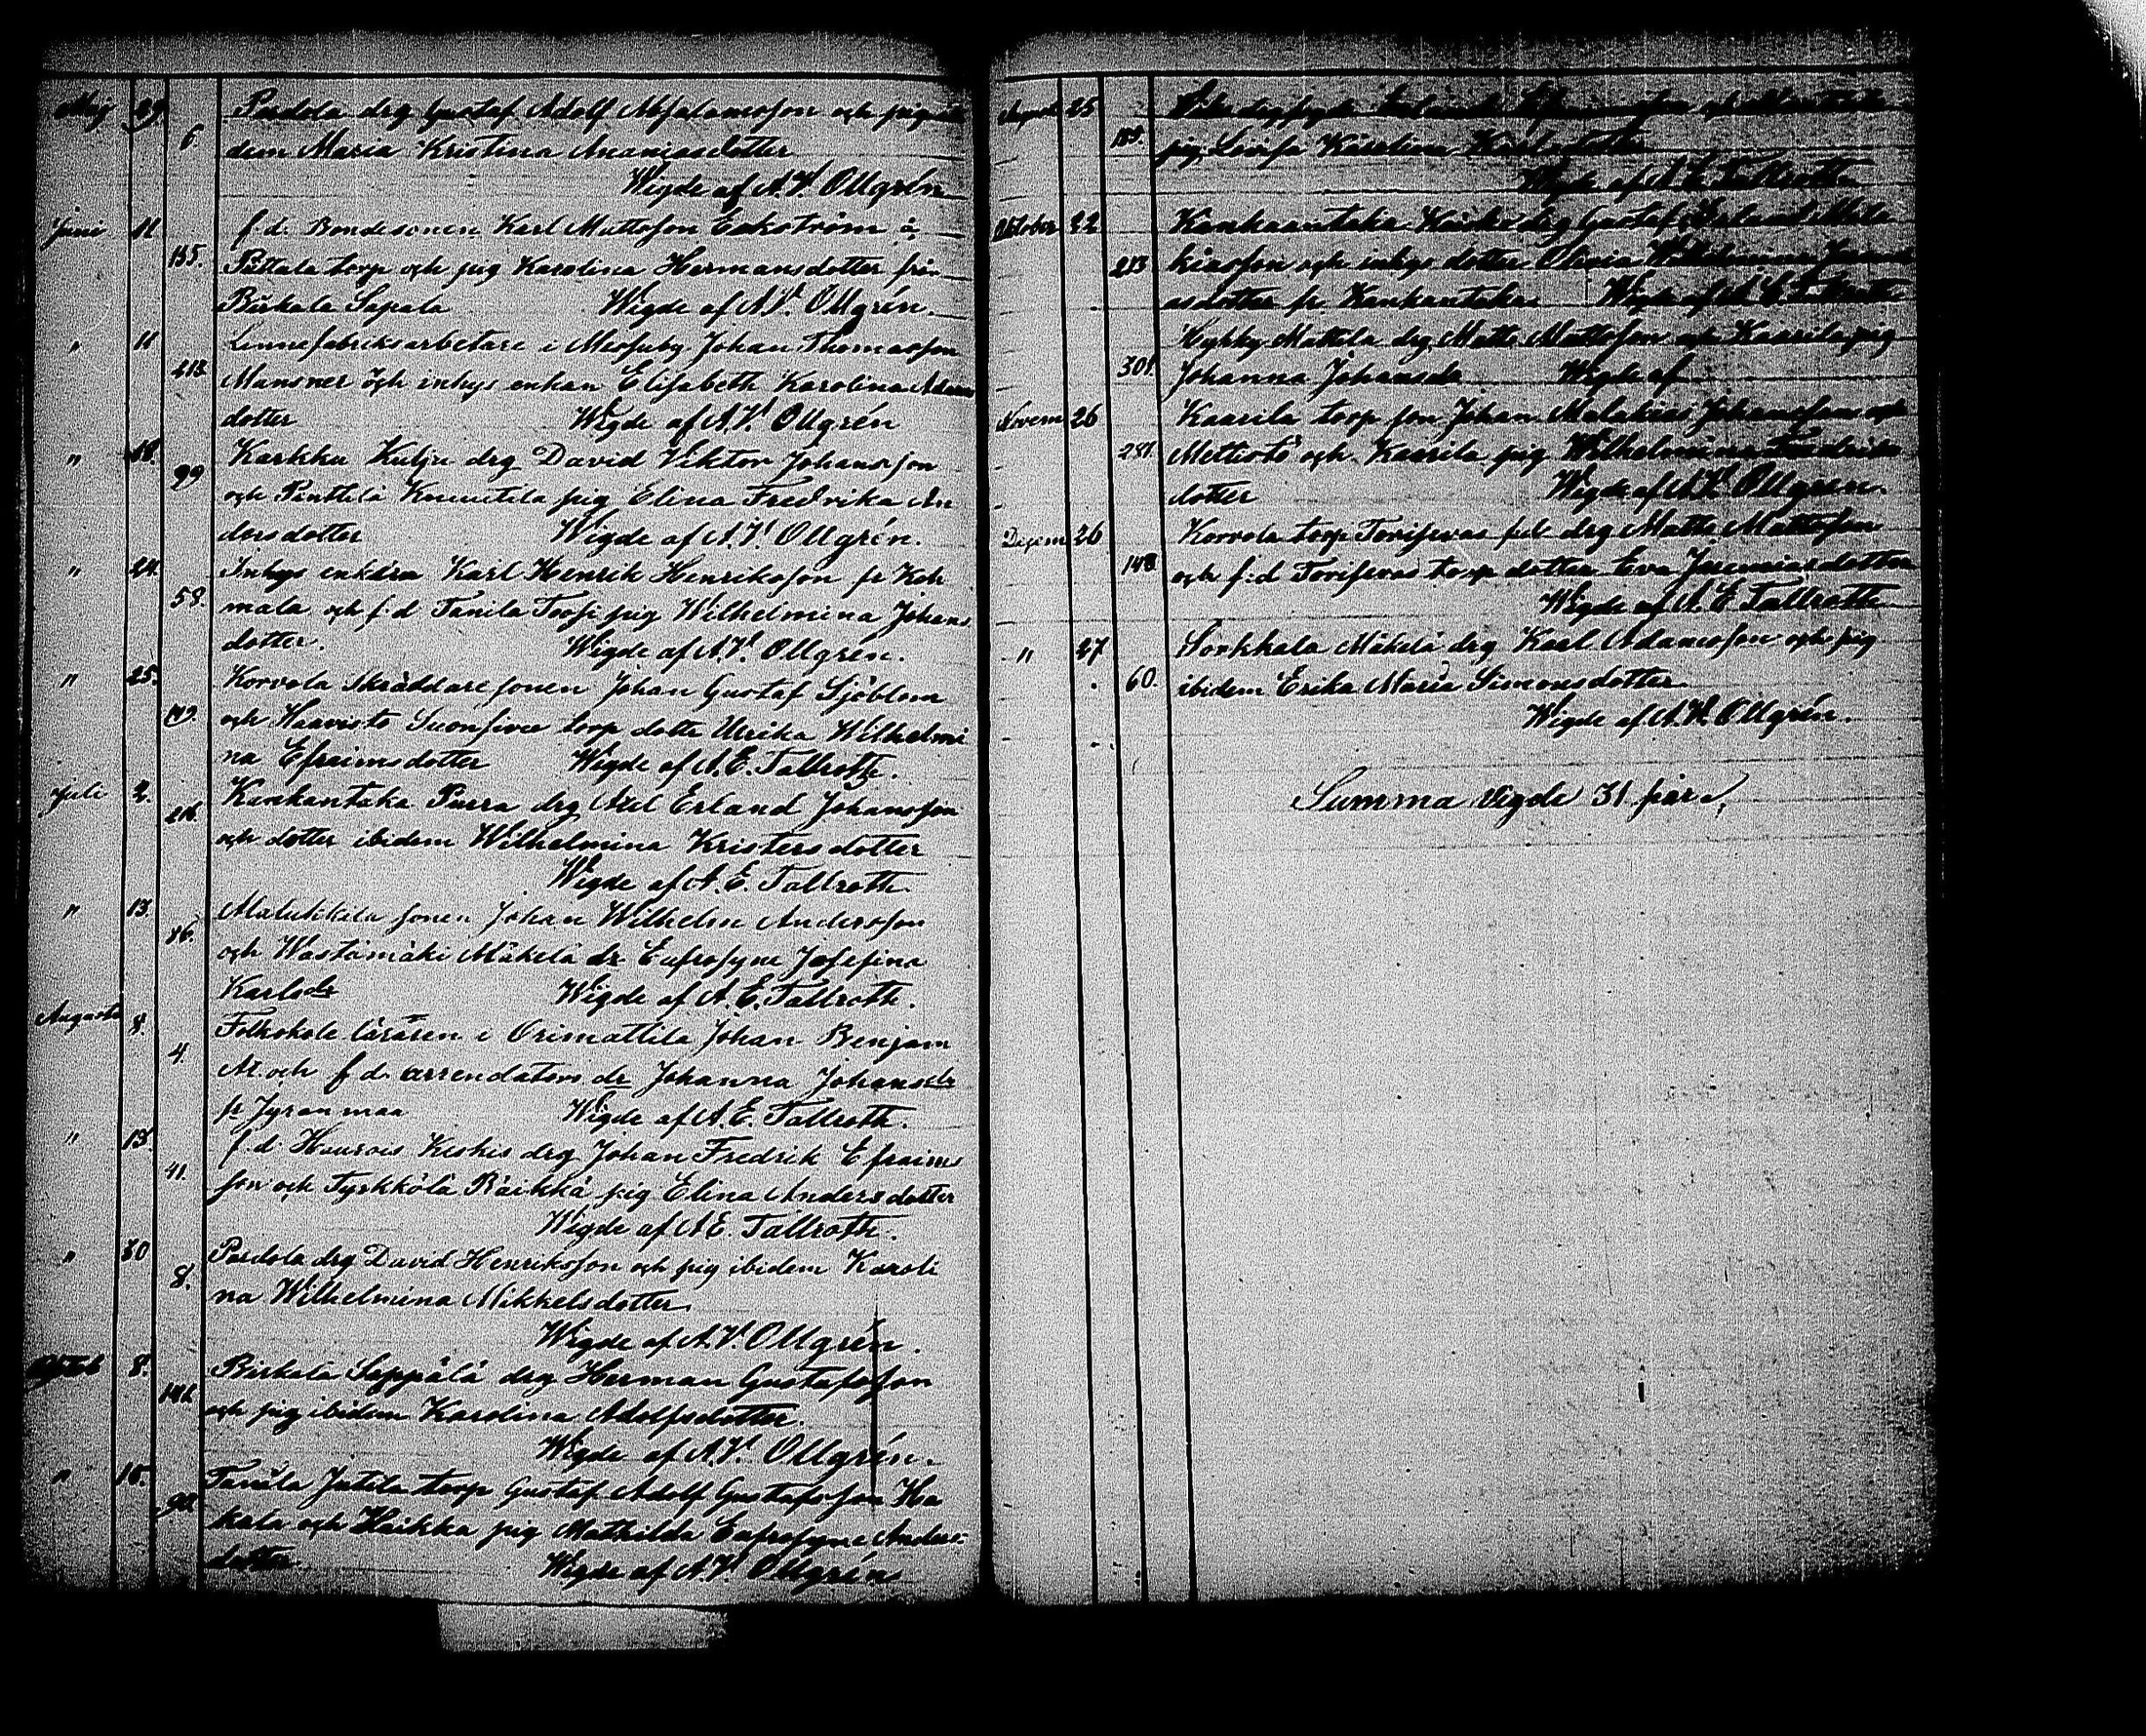 Maj 29 6. Pardola drg Gustaf Adolf Absalomsson och pig
dem Maria Kristina Ananiasdotter
Wigde af A.V. Ollgrén
Juni 11 155. f.d. Bondesonen Karl Mattsson Eckström å
Pättala torp och pig Karolina Hermansdotter frå
Birkala Sapala Wigde af A.V. Ollgrén.
" 11 213. Linnefabriksarbetare i Messuby Johan Thomasson
Mansner och inhys enkan Elisabeth Karolina Adams
dotter Wigde af A.V. Ollgrén
" 18. 99 Karkku Kulju drg David Viktor Johansson
och Penttilä Knuutila pig Elina Fredrika An
dersdotter Wigde af A.V. Ollgrén.
" 24. 58. Inhys enkl. Karl Henrik Henriksson fr
mala och f.d. Tanila Torp pig Wilhelmina Johans
dotter. Wigde af A.V. Ollgrén.
" 25. 149. Korvola Skräddaresonen Johan Gustaf Sjöblom
och Haavisto torp dotter Ulrika Wilhelmi
na Efraimsdotter Wigde af A.E. Tallroth.
Juli 2. 216. Kankantaka Purra drg Axel Erland Johansson
och dotter ibidem Wilhelmina Kristersdotter
Wigde af A.E. Tallroth.
" 13. 86. sonen Johan Wilhelm Andersson
och Wastamäki Mäkelä dr Eufrosyne Josefina
Karlsdr Wigde af A.E. Tallroth.
Augusti 8. 4. Folkskole läraren i Orimattila Johan Benjam
och f.d. arrendators dr Johanna Johansdr
fr Jyränmaa Wigde af A.E. Tallroth.
" 13. 41. f.d. Keskis drg Johan Fredrik Efraims
son och Tyrkkölä Räikkä pig Elina Andersdotter
Wigde af A.E. Tallroth.
" 30 8. Pardola drg David Henriksson och pig ibidem Karoli
na Wilhelmina Mikkelsdotter.
Wigde af A.V. Ollgrén.
8. 146. Birkala Sappälä drg Herman Gustafsson
och pig ibidem Karolina Adolfsdotter.
Wigde af A.V. Ollgrén.
" 15. 90. Tanila Jutila torp Gustaf Adolf Gustafsson Ha
kala och Haikka pig Mathilda Eufrosyne Anders
dotter. Wigde af A.V. Ollgrén
Augusti 25
pig Lovisa Karolina Karlsdotter
Wigde af A.E. Tallroth
Oktober 22 213 Kankaantaka drg Gustaf Erland Mala
kiasson och inhys dotter Olivia Wilhelmina
asdotter fr. Kankantaka Wigde af A.E. Tallroth
301. Hyhky Mattila drg Matts Mattsson och Kaarila pig
Johanna Johansdr Wigde af
Novem 26 281. Kaarila torp son Johan Malakias Johansson
Mettistö och Kaarila pig Wilhelmina Fredriks
dotter Wigde af A.V. Ollgrén.
Decem 26 148. Korvola torp drg Matts Mattsson
och f.d. torp dotter Eva Jeremiasdotter
Wigde af A.E. Tallroth
" 27 60. Sorkkala Mäkelä drg Karl Adamsson och pig
ibidem Erika Maria Simonsdotter
Wigde af A.V. Ollgrén.
Summa vigde 31 par.